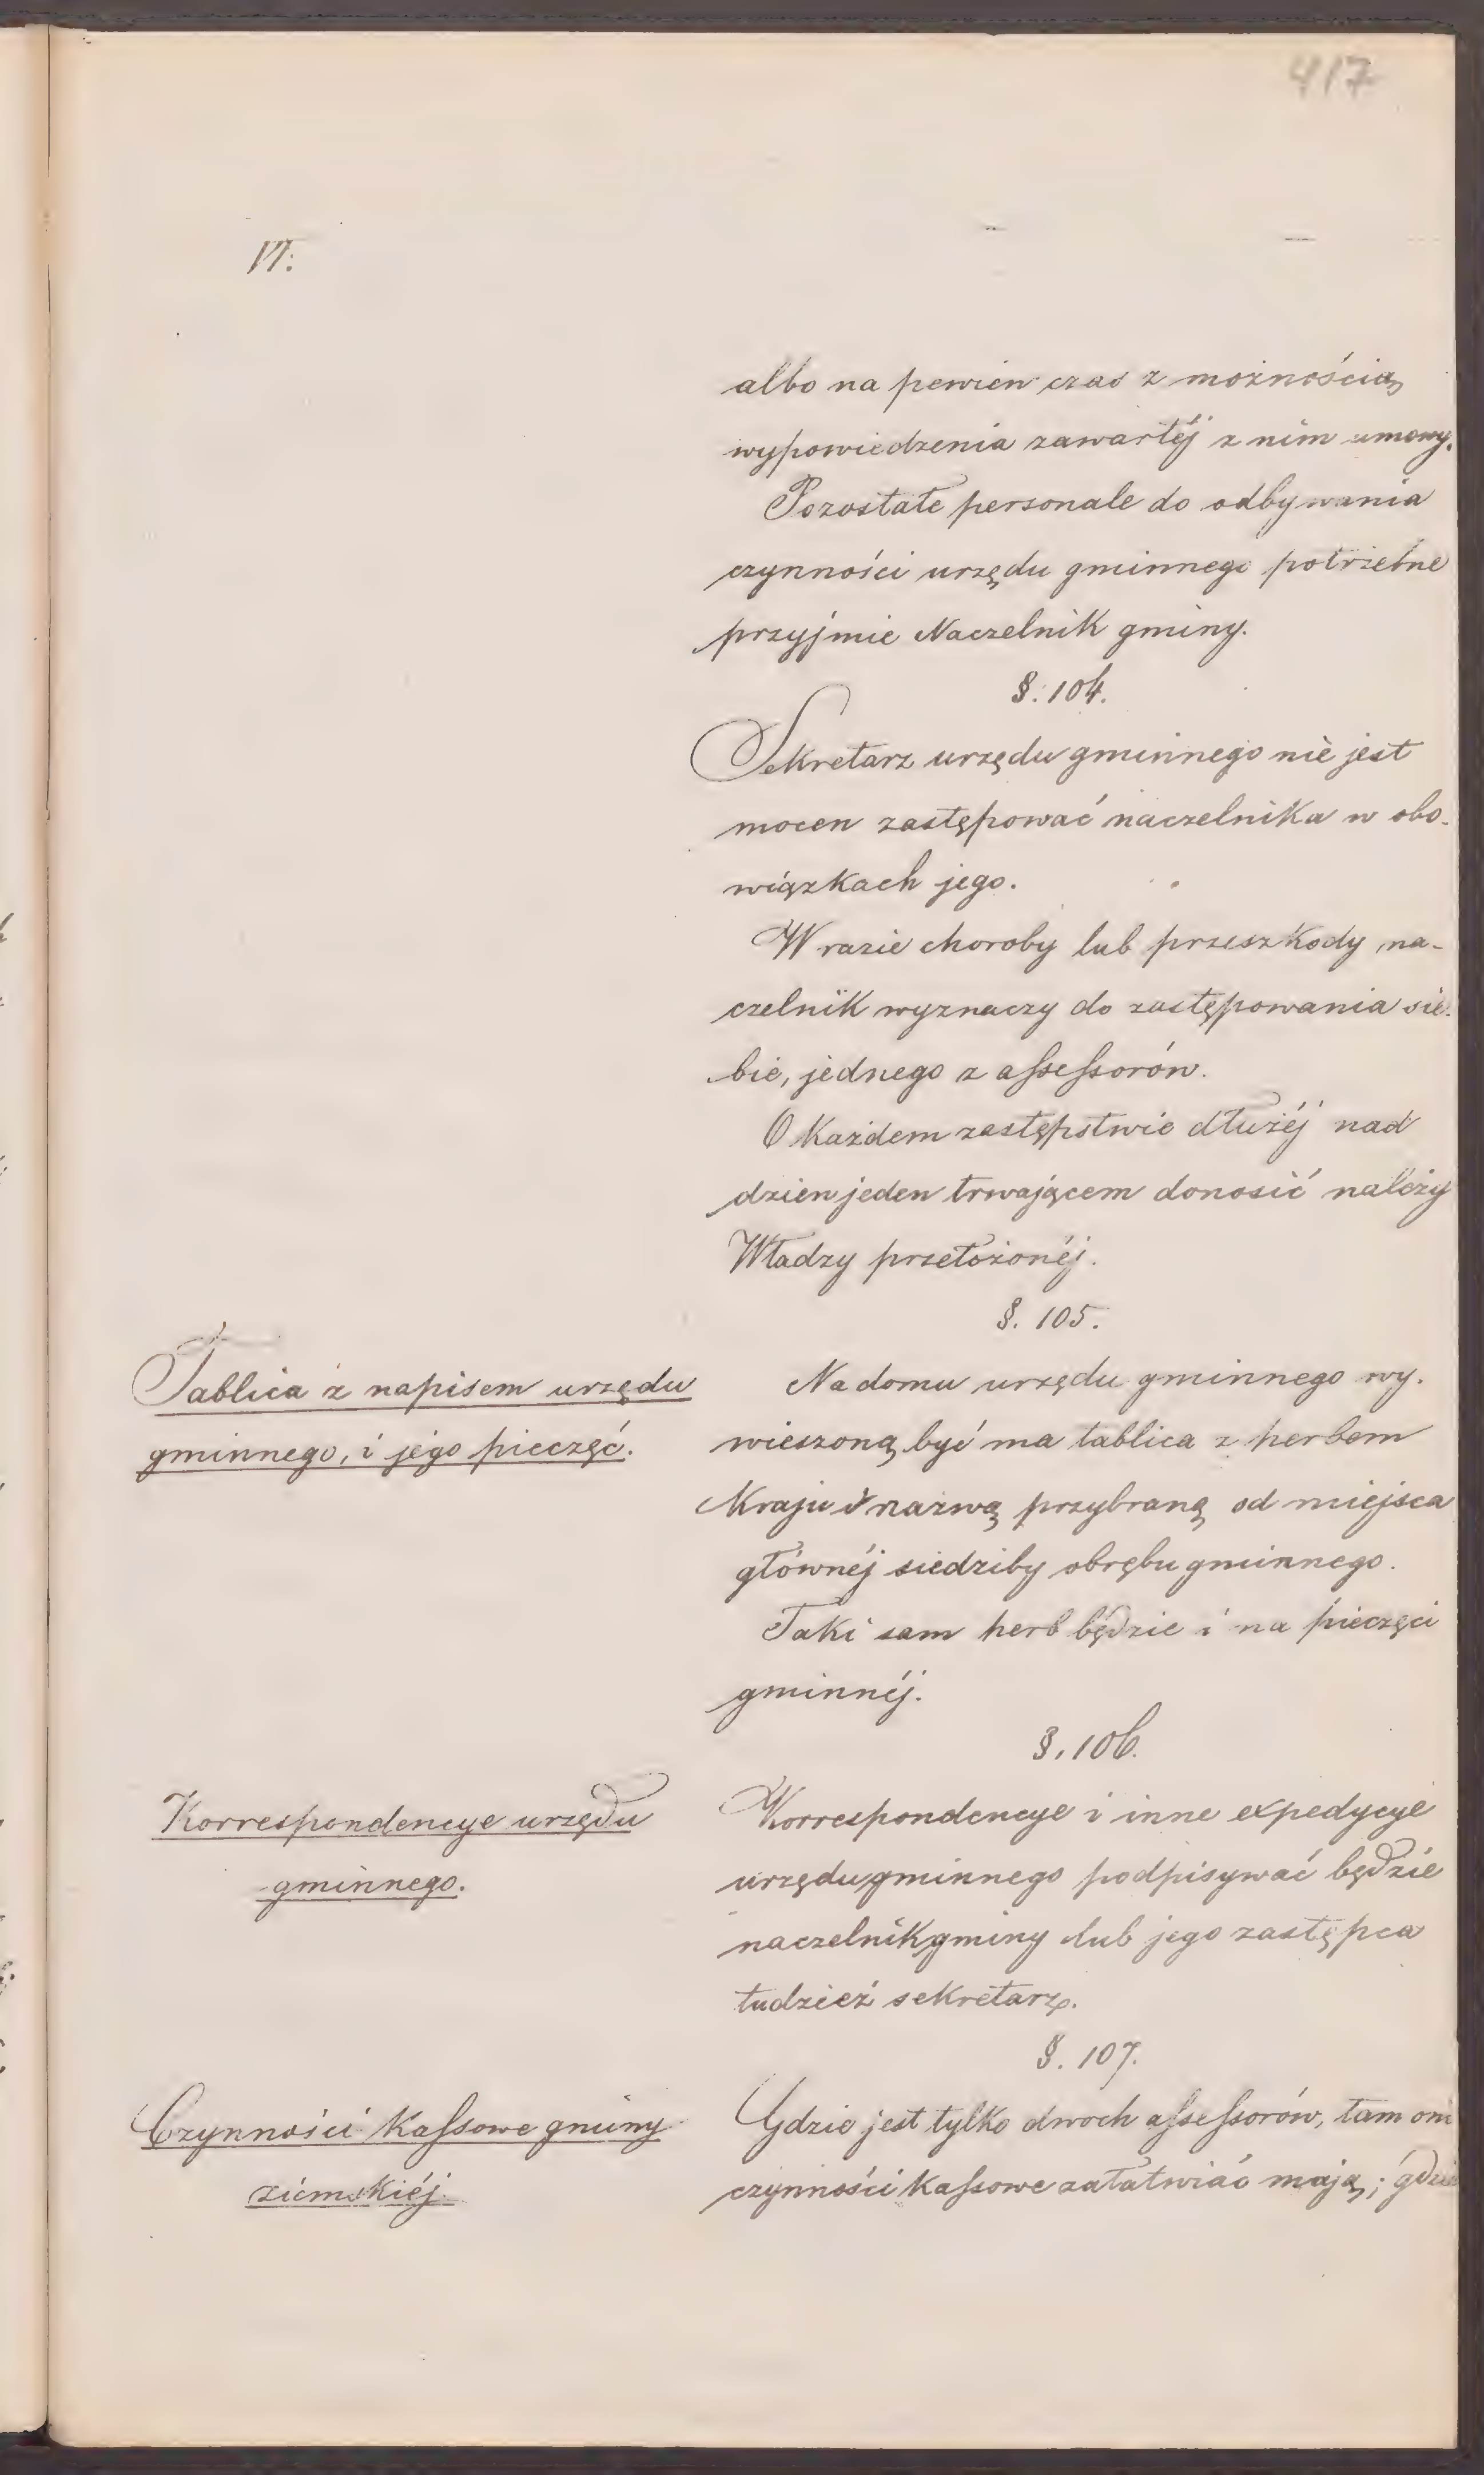 417
VI.
albo na pewien czas z możnością
wypowiedzenia zawartéj z nim umowy.
Pozostałe personale do odbywania
czynności urzędu gminnego potrzebne
przyjmie Naczelnik gminy.
§. 104.
Sekretarz urzędu gminnego nie jest
mocen zastępować naczelnika w obo-
wiązkach jego.
W razie choroby lub przeszkody na-
czelnik wyznaczy do zastępowania sie-
bie, jednego z assessorów.
O każdem zastępstwie dłużéj nad
dzien jeden trwającem donosić należy
Władzy przełożonéj.
§. 105.
Tablica z napisem urzędu
gminnego, i jego pieczęć.
Na domu urzędu gminnego wy-
wieszoną być ma tablica z herbem
Kraju i nazwą przybraną od miejsca
głównéj siedziby obrębu gminnego.
Taki sam herb będzie i na pieczęci
gminnéj.
§. 106.
Korrespondencye urzędu
gminnego.
Korrespondencye i inne expedycye
urzędu gminnego podpisywać będzie
naczelnik gminy lub jego zastępca
tudzież sekretarz.
§. 107.
Czynności Kassowe gminy
ziemskiéj.
Gdzie jest tylko dwoch assessorów, tam oni
czynności kassowe załatwiać mają; gdzie